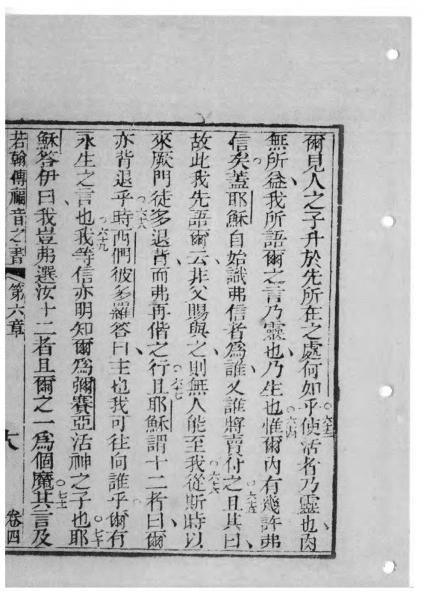 爾見人之子升於先所在之處何如乎使活者乃靈也肉
六三
無所益我所語爾之言乃靈也乃生也惟爾內有幾許弗
六四
信矣蓋耶穌自始識弗信者為誰又誰將賣付之且其曰
六五
故此我先語爾云非父賜與之則無人能至我從斯時以
六六
來厥門徒多退背而弗再偕之行且耶穌謂十二者曰爾
六七
亦背退乎時西們彼多羅答曰主也我可往向誰乎爾有
六八
永生之言也我等信亦明知爾為彌賽亞活神之子也耶
六九
七十
穌答伊曰我豈弗選汝十二者且爾之一為個魔其言及
七一
若翰傳福音之書
第六章
六
卷四